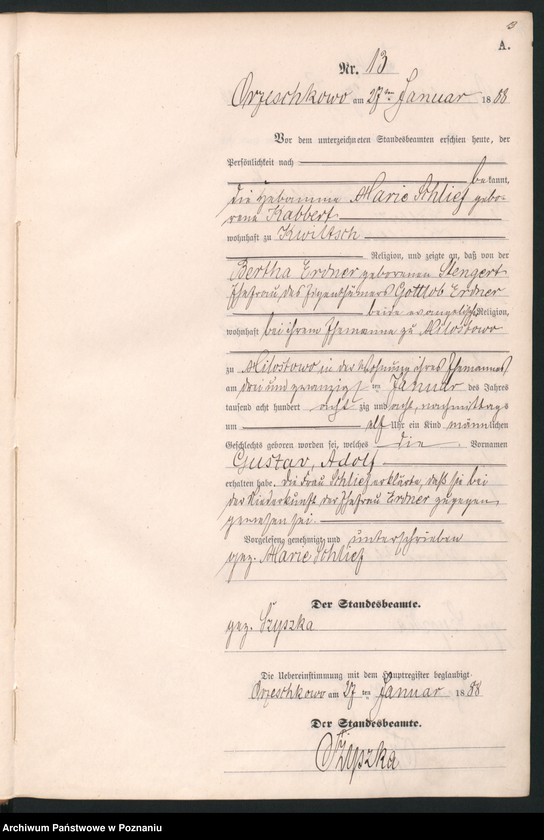 13
A.
Nr. 13
Orzeschkowo am 27ten Januar 1888
Vor dem unterzeichneten Standesbeamten erschien heute, der
Persönlichkeit nach
bekannt,
die Hebamme Marie Schlief gebo-
rene Kabbert
wohnhaft zu Kwiltsch
Religion, und zeigte an, daß von der
Bertha Erdner geborenen Stengert
Ehefrau des Eigenthümers Gottlob Erdner
beide evangelischer Religion,
wohnhaft bei ihrem Ehemanne zu Milostowo
zu Milostowo in der Wohnung ihres Ehemannes
am drei und zwanzigsten Januar des Jahres
tausend acht hundert achtzig und acht, nachmittags
um elf Uhr ein Kind männlichen
Geschlechts geboren worden sei, welches die Vornamen
Gustav, Adolf
erhalten habe. Die Frau Schlief erklärte, daß sie bei
der Niederkunft der Ehefrau Erdner zugegen
gewesen sei.
Vorgelesen, genehmigt und unterschrieben
gez. Marie Schlief
Der Standesbeamte.
gez. Szyszka
Die Uebereinstimmung mit dem Hauptregister beglaubigt
Orzeschkowo am 27ten Januar 1888
Der Standesbeamte.
Szyszka
Archiwum Państwowe w Poznaniu